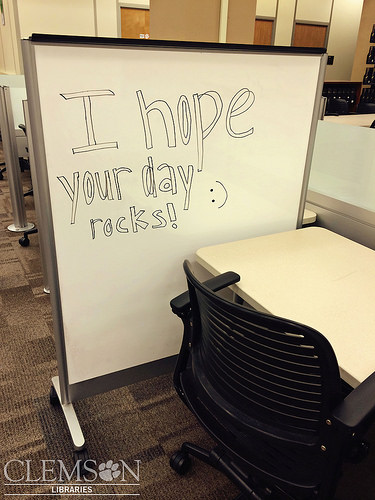 I hope
your day :)
rocks!
CLEMSON
LIBRARIES